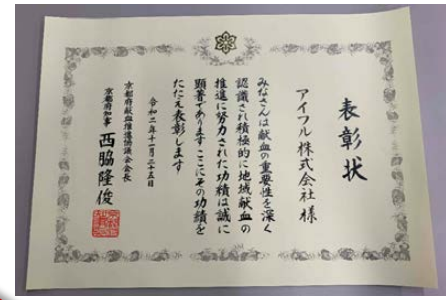 表彰状
アイフル株式会社様
みなさんは献血の重要性を深く
認識され積極的に地域献血の
推進に努力された功績は誠に
顕著でありますここにその功績を
たたえ表彰します
令和二年十一月二十五日
京都府献血推進協議会会長
京都府知事 西脇隆俊